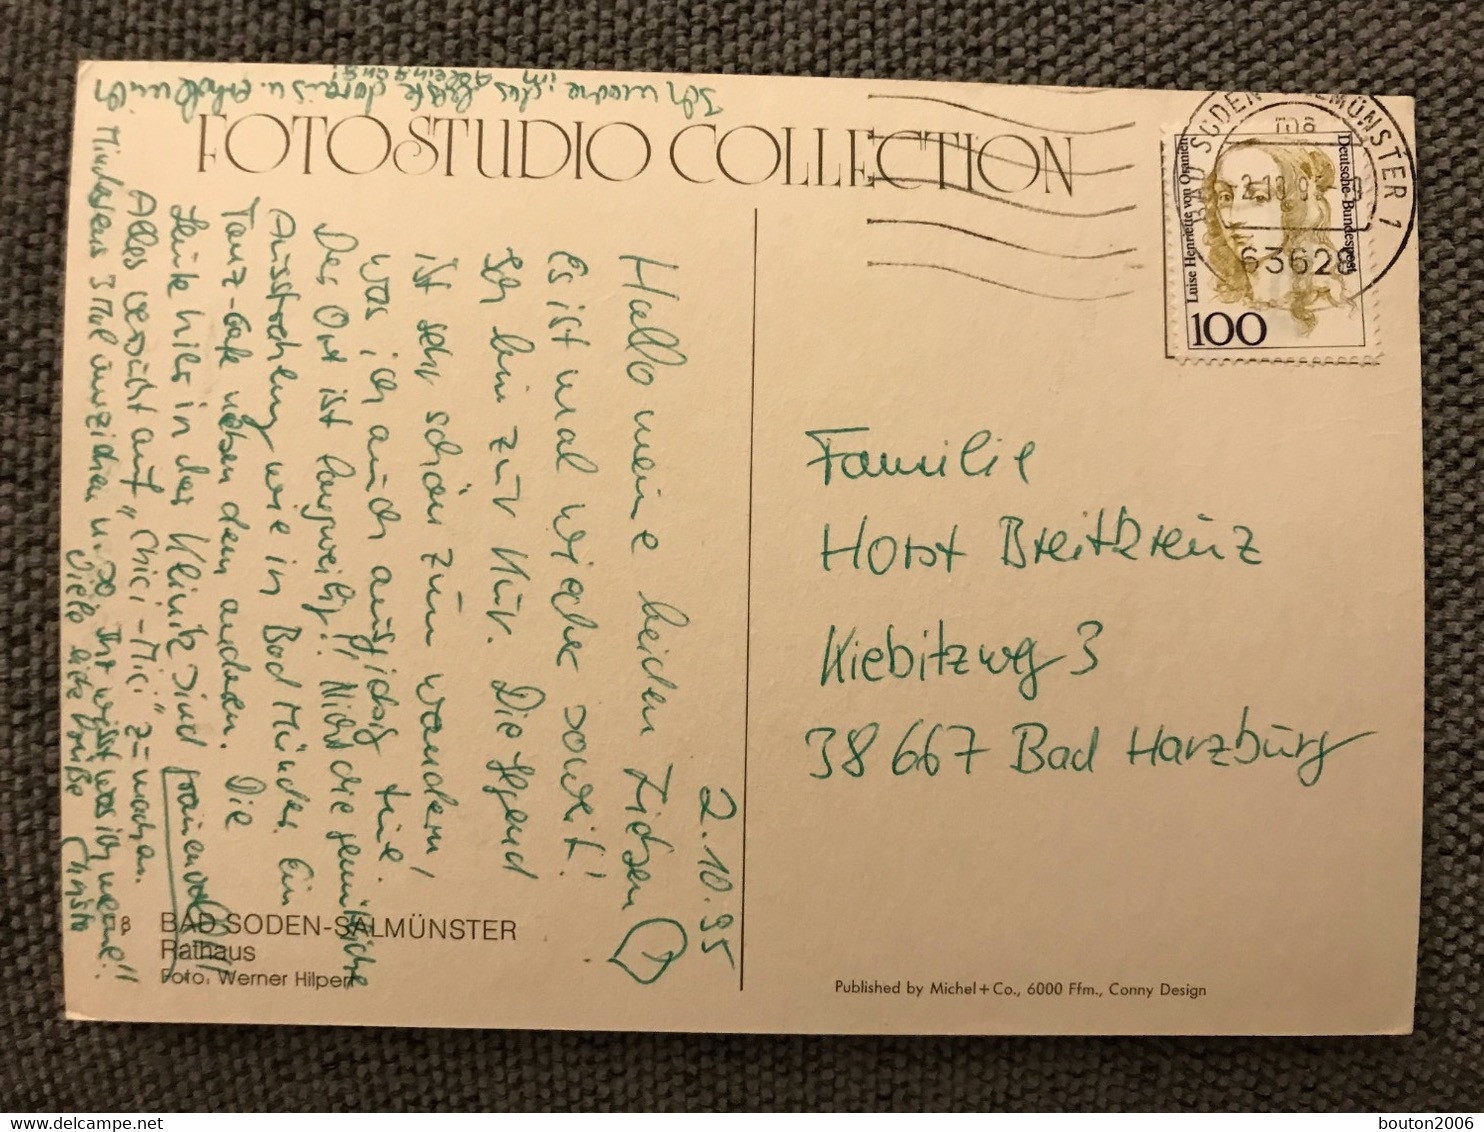 FOTOSTUDIO COLLECTION
2.10.95
Hallo meine beiden Lieben
Es ist mal wieder soweit!
Ich bin zur Kur. Die Gegend
ist sehr schön zum wandern,
was ich auch ausgiebig tue.
Der Ort ist langweilig! Nicht die gemütliche
Ausstrahlung wie in Bad Münder. Ein
Tanz-Cafe neben dem anderen. Die
Leute hier in der Klinik sind
Alles versucht auf "Chici-Mici" zu machen.
Mindestens 3 Mal umziehen u. so. Ihr wisst was ich meine!!
Viele liebe Grüße
Ich mache das beste daraus u. erhole mich
im
BAD SODEN-SALMÜNSTER
Rathaus
Foto: Werner Hilpert
Familie
Horst Breitkreuz
Kiebitzweg 3
38667 Bad Harzburg
Published by Michel+Co., 6000 Ffm., Conny Design
BAD SODEN-SALMÜNSTER 1
63628
Luise Henriette von Oranien
Deutsche Bundespost
100
bouton2006